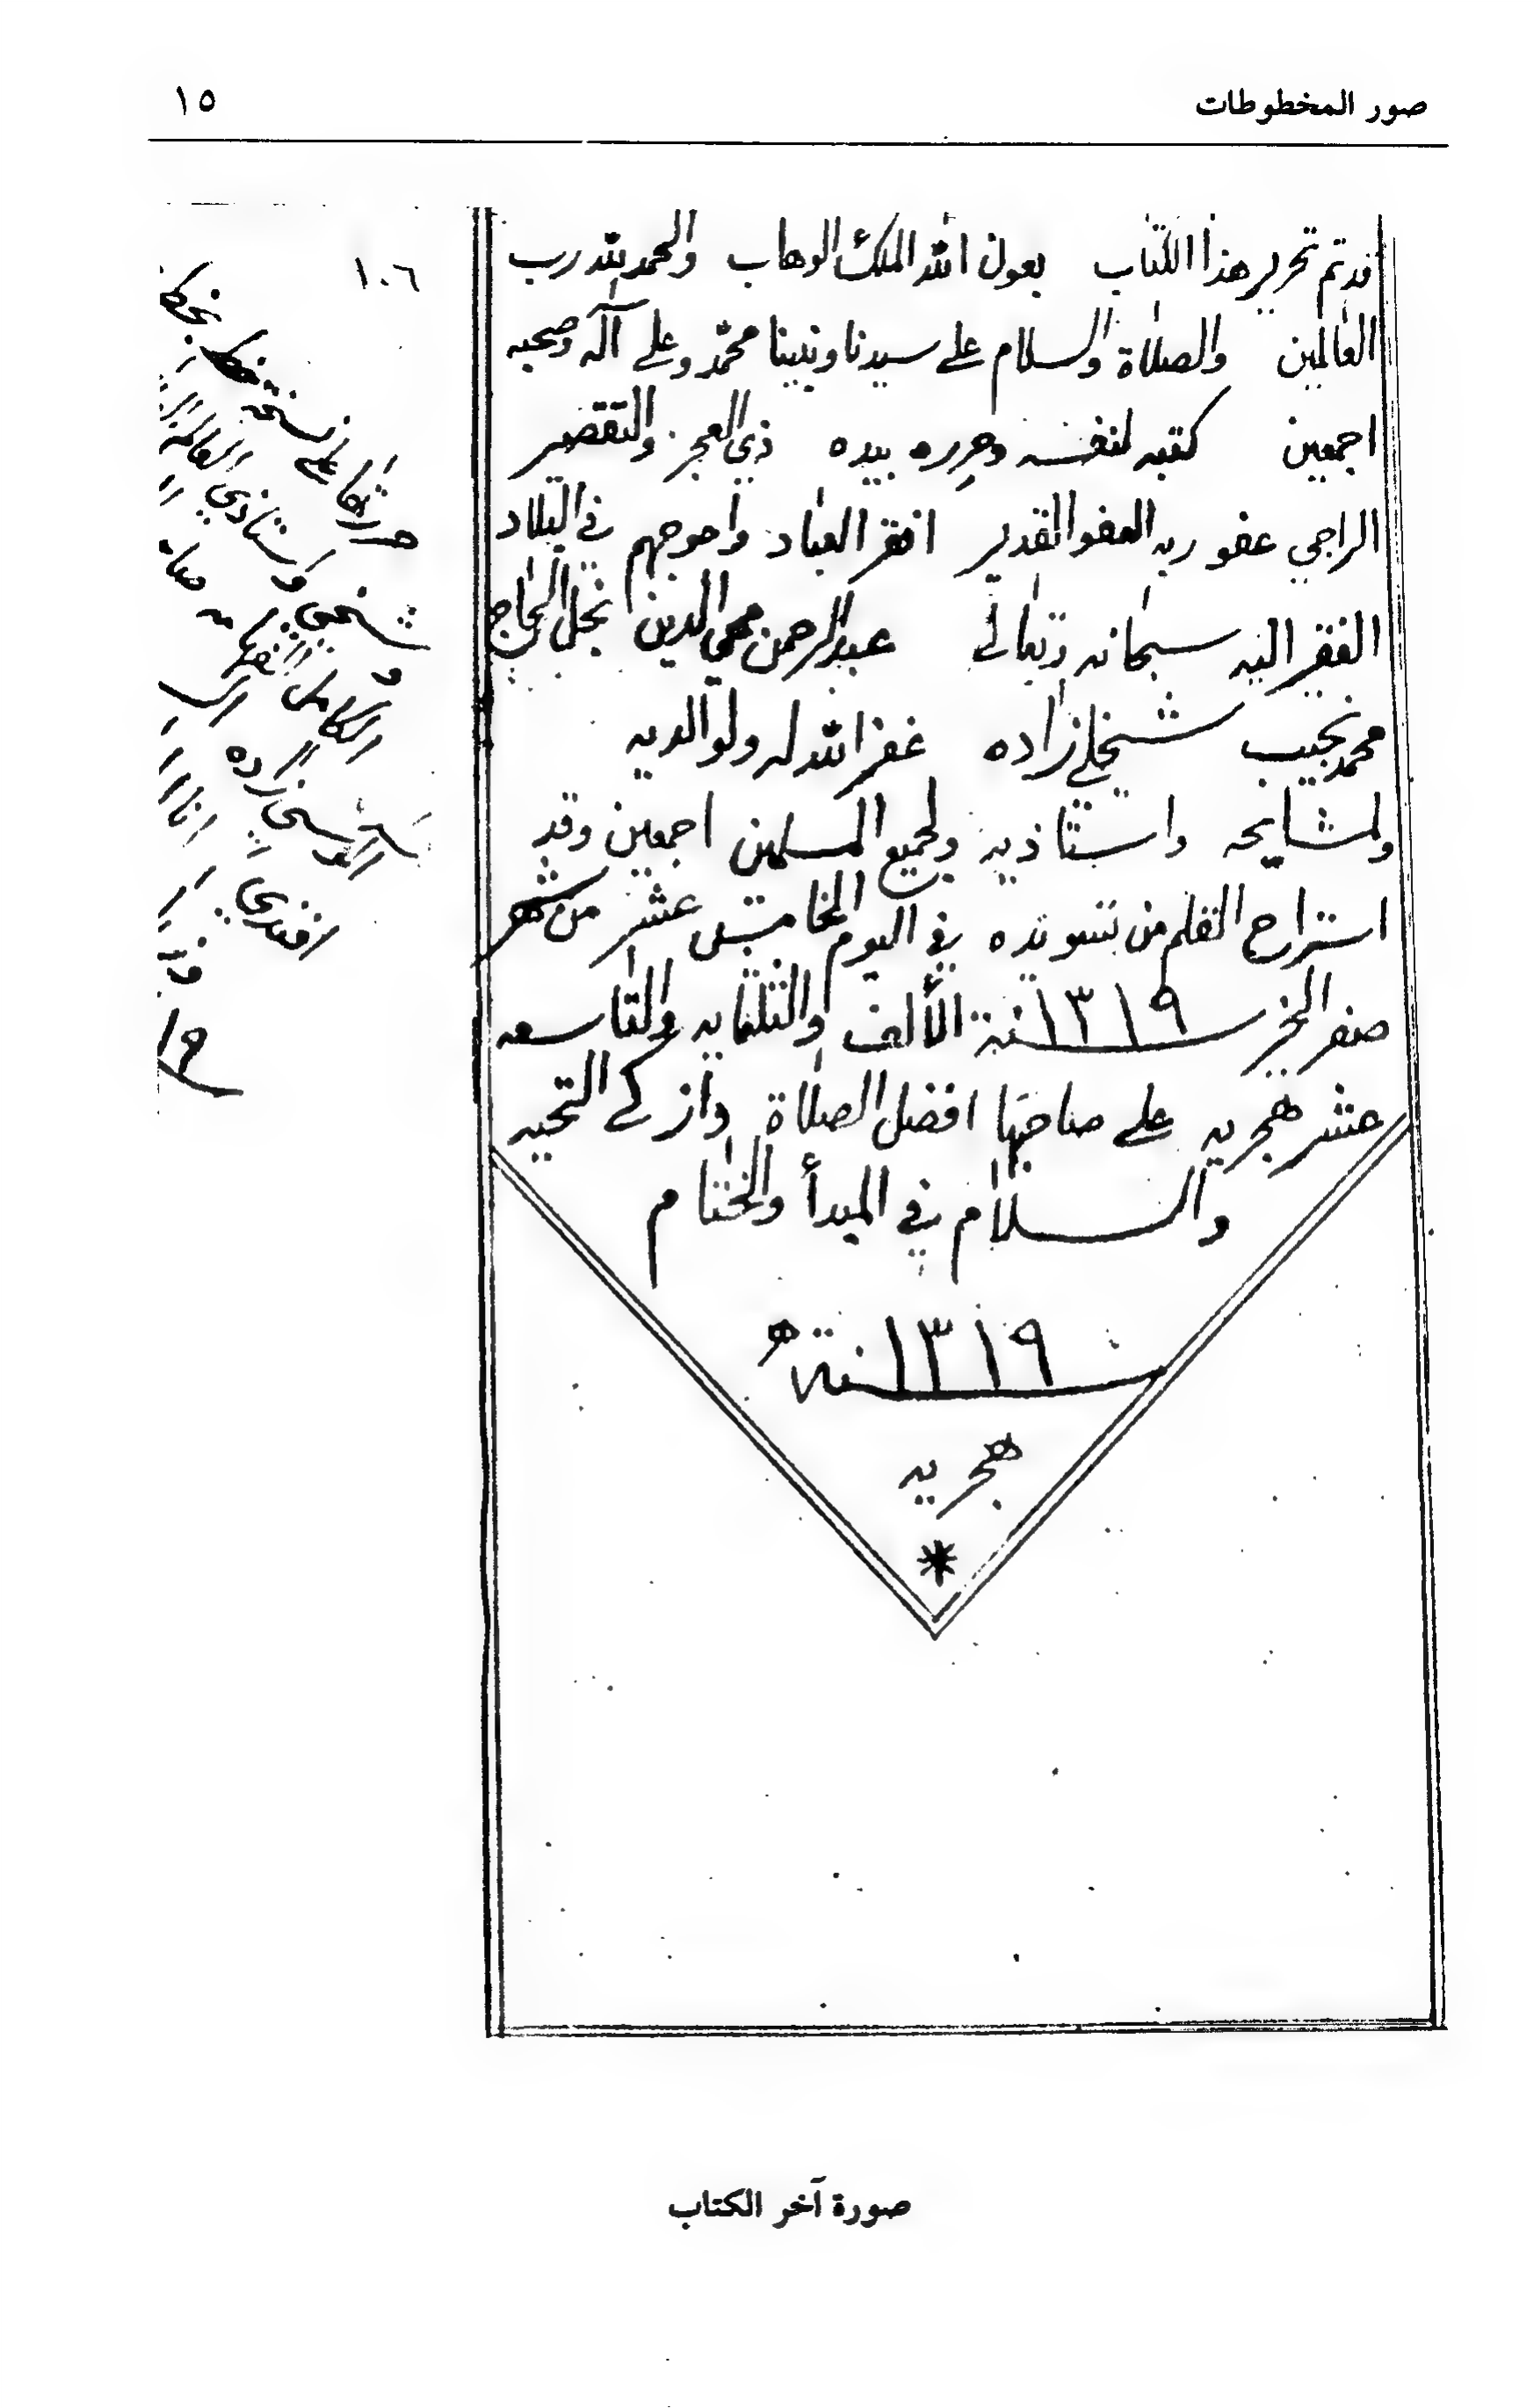 صور المخطوطات
١٥
قد تم تحرير هذا الكتاب بعون الله الملك الوهاب والحمد لله رب
العالمين والصلاة والسلام على سيدنا ونبينا محمد وعلى آله وصحبه
اجمعين كتبه لنفسه وحرره بيده ذي العجز والتقصير
الراجي عفو ربه العفو القدير افقر العباد واحوجهم في البلاد
الفقير اليه سبحانه وتعالى عبد الرحمن محي الدين نجل الحاج
محمد نجيب شيخلي زاده غفر الله له ولوالديه
ولمشايخه واستاذيه ولجميع المسلمين اجمعين وقد
استراح القلم من تسويده في اليوم الخامس عشر من شهر
صفر الخير سنة ١٣١٩ الألف والثلثمايه والتاسعه
عشر هجريه على صاحبها افضل الصلاة وازكى التحيه
والسلام في المبدأ والختام
سنة ١٣١٩ ه
هجريه
*
١٠٦
على نسخة
شيخي واستاذي
الكامل
زاده
افندي
صورة آخر الكتاب